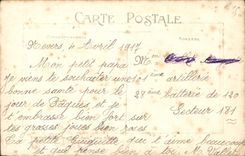 CARTE POSTALE
Nevers, 4 Avril 1917
Mon petit papa
Je viens te souhaiter une
bonne santé pour le
jour de Pâques et je
t'embrasse bien fort sur
tes grosses joues bien roses
Ta petite qui t'aime beaucoup
et qui pense bien à toi. M.
Mr
1er artillerie
27ème batterie de 120
Secteur 181